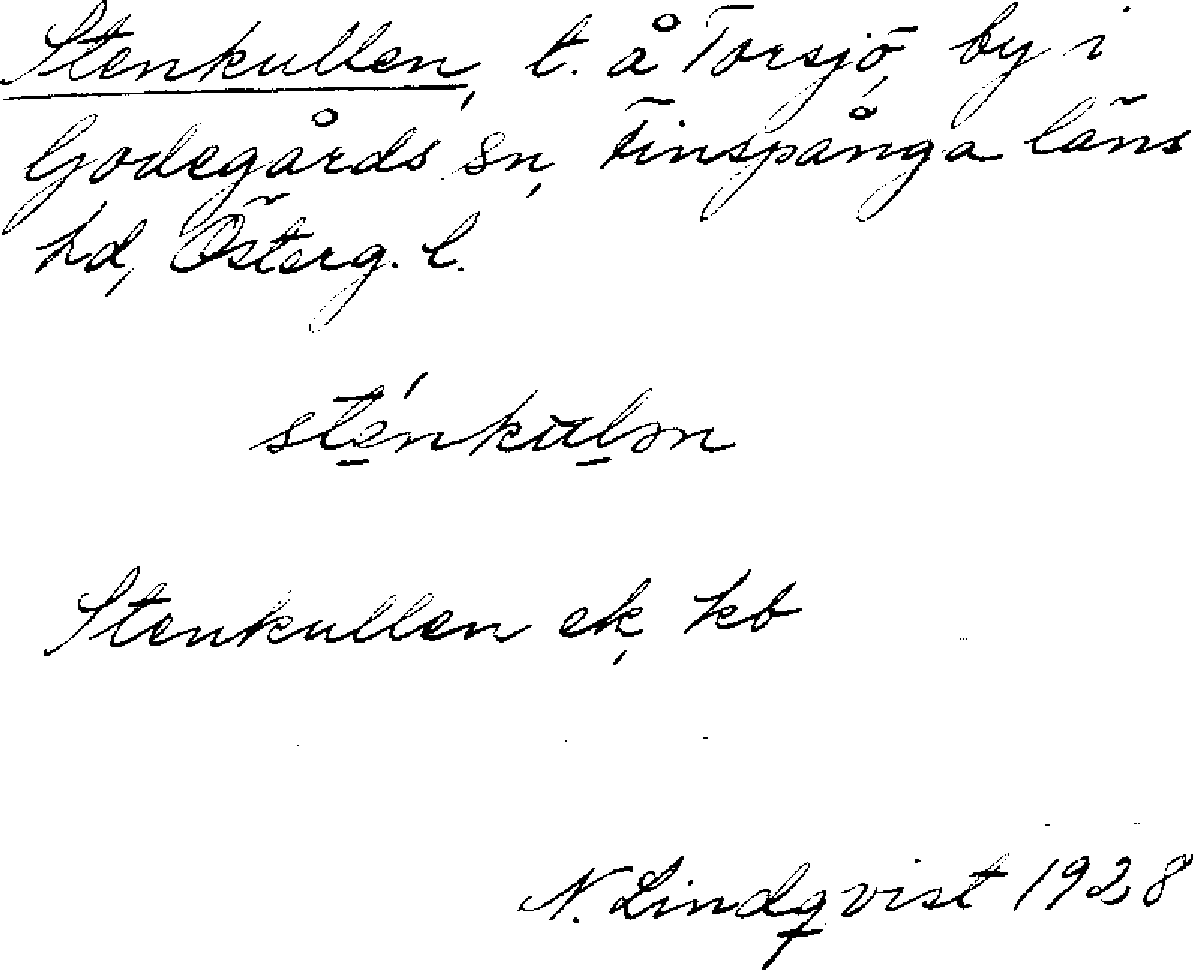 Stenkullen, t. å Torsjö, by i
Godegårds sn, Finspånga läns
hd, Österg. l.
sténkulǝn
Stenkullen ek, kb
N. Lindqvist 1928